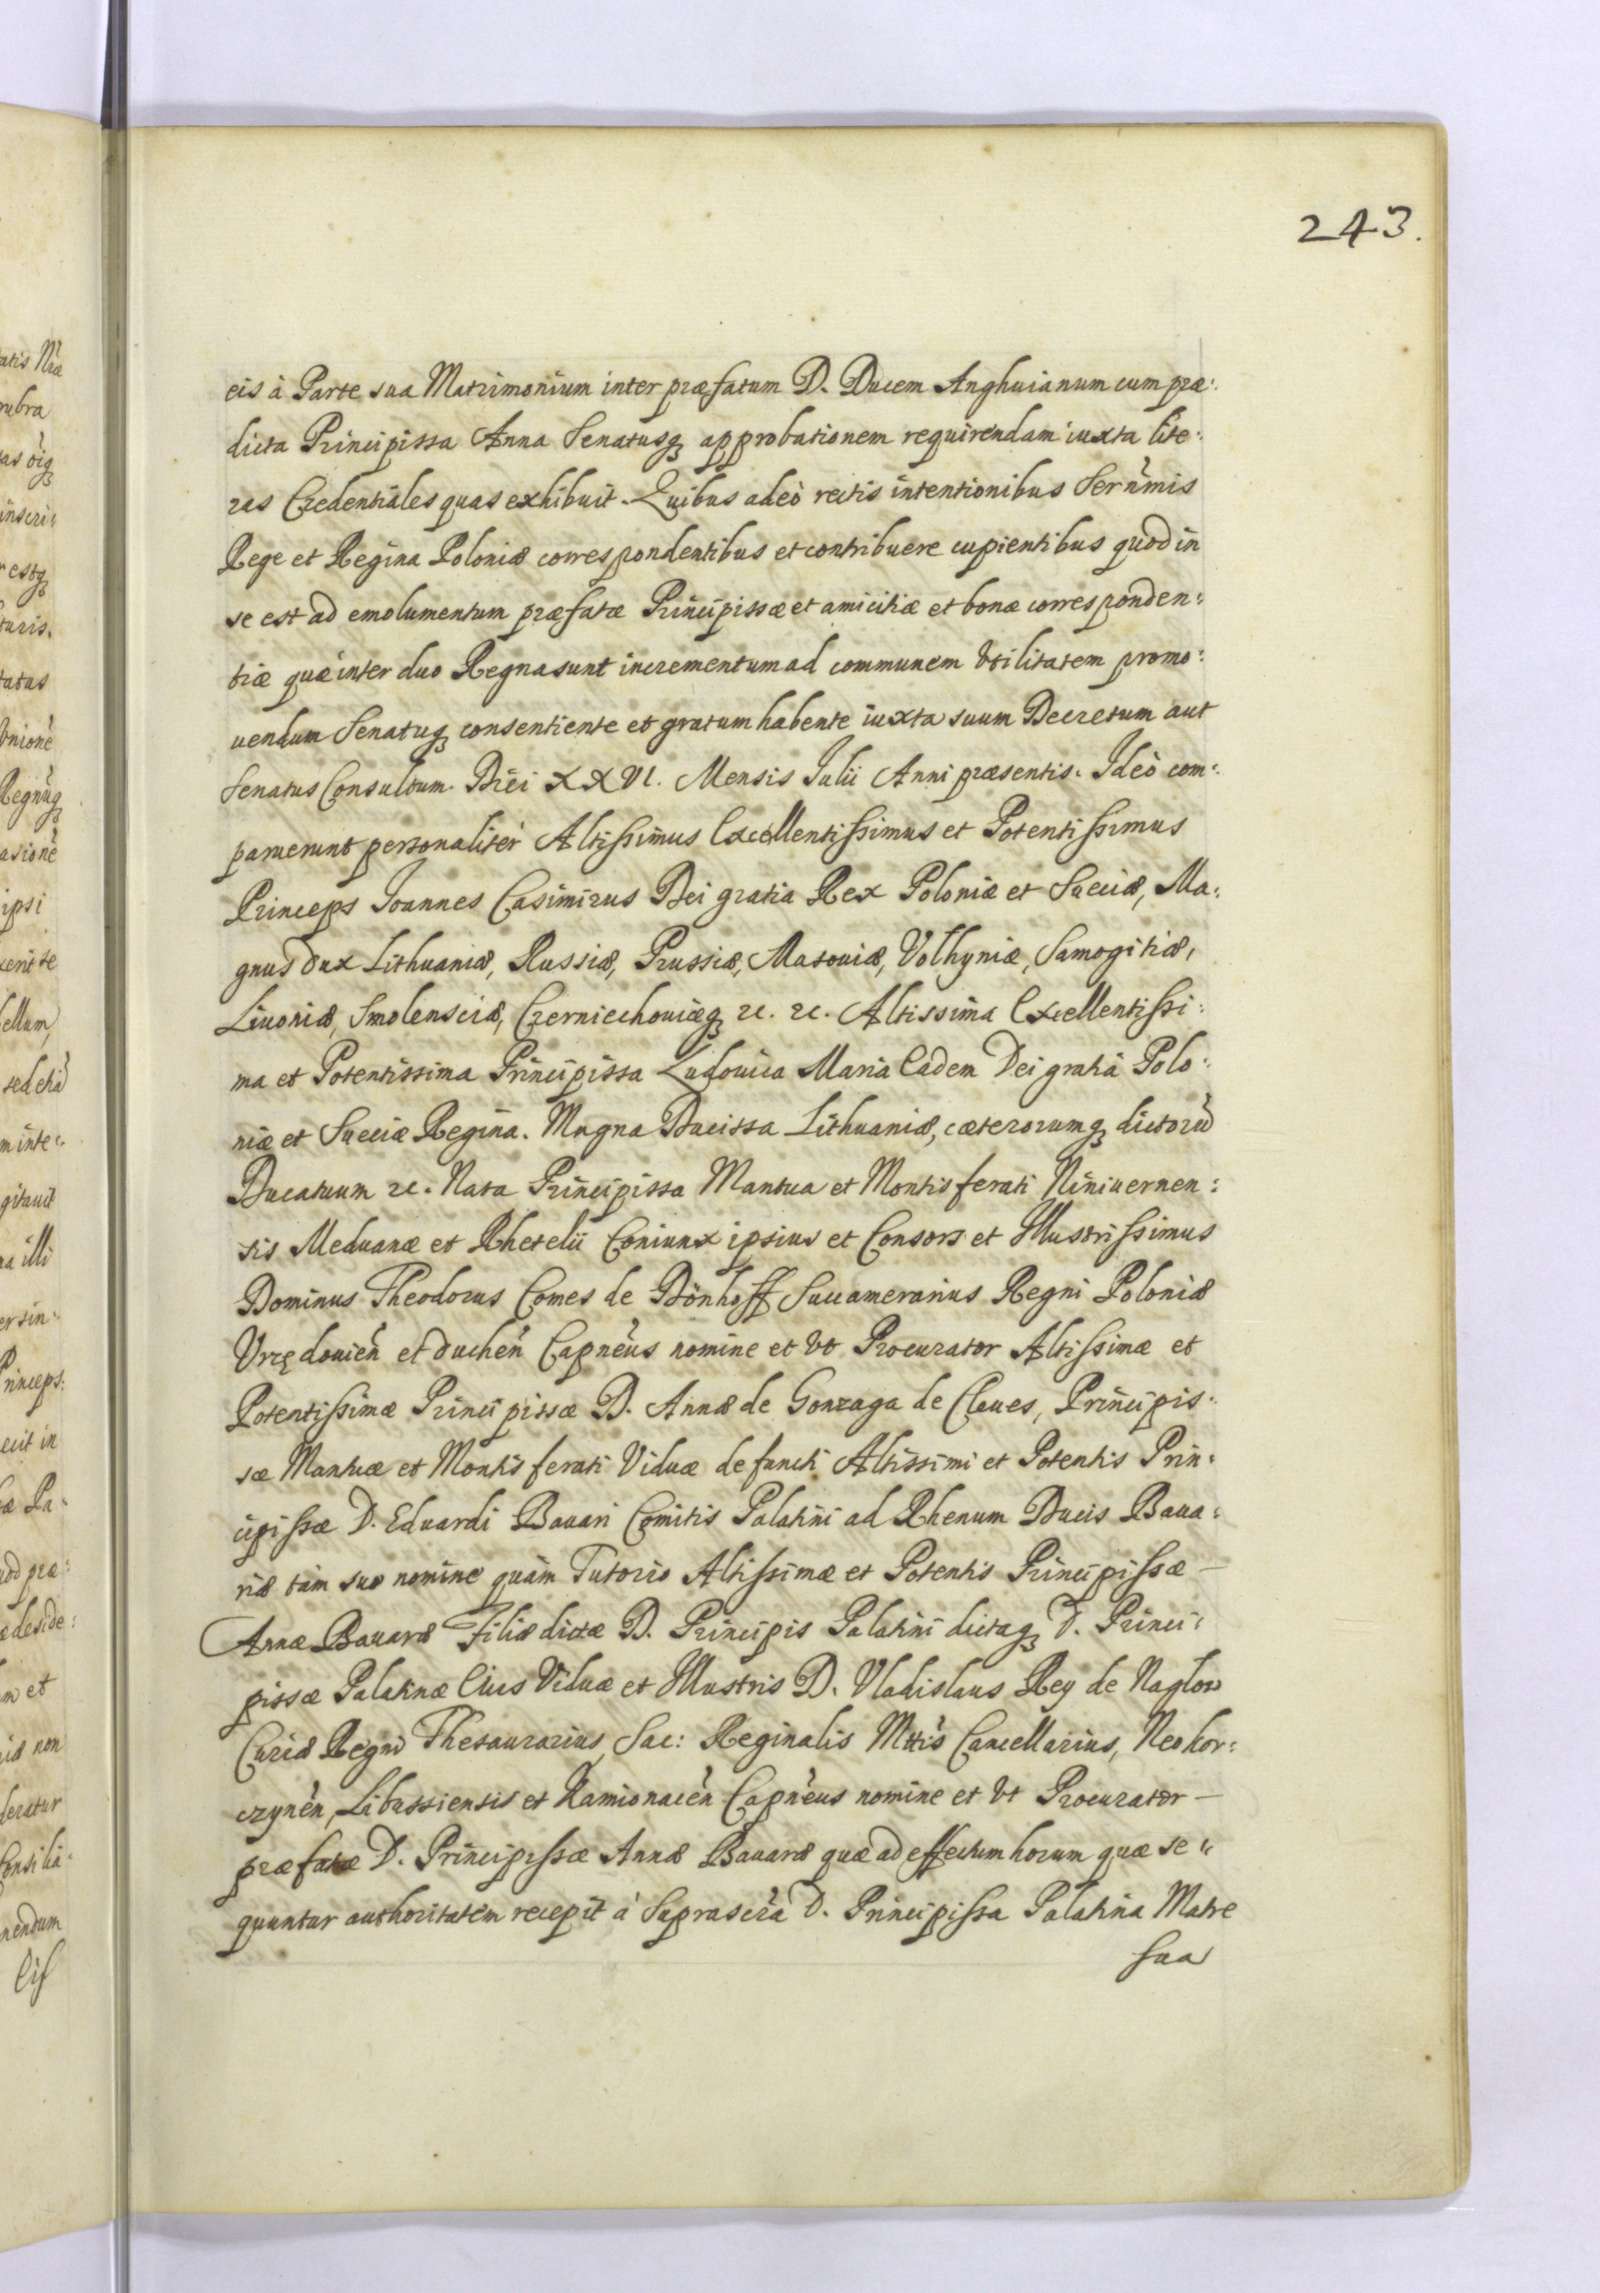 243.
eis à Parte sua Matrimonium inter præfatum D. Ducem Anghuianum cum præ:
dicta Principissa Anna Senatusq; approbationem requirendam iuxta lite:
ras Credentiales quas exhibuit. Quibus adeò rectis intentionibus Sernmis
Rege et Regina Poloniæ correspondentibus et contribuere cupientibus quod in
se est ad emolumentum præfatæ Principissæ et amicitiæ et bonæ corresponden:
tiæ quæ inter duo Regna sunt incrementum ad communem Vtilitatem promo:
uendum Senatuq; consentiente et gratum habente iuxta suum Decretum aut
Senatus Consultum Diei XXVI. Mensis Iulii Anni præsentis. Ideò com:
paruerunt personaliter Altissimus Excellentissimus et Potentissimus
Princeps Ioannes Casimirus Dei gratia Rex Poloniæ et Sueciæ, Ma:
gnus dux Lithuaniæ, Russiæ, Prussiæ, Masouiæ, Volhyniæ, Samogitiæ,
Liuoniæ, Smolensciæ, Czerniechouiæq; &c. &c. Altissima Excellentissi:
ma et Potentissima Principissa Ludouica Maria Eadem Dei gratiâ Polo:
niæ et Sueciæ Regina. Magna Ducissa Lithuaniæ, cæterorumq; dictorũ
Ducatuum &c. Nata Principissa Mantua et Montisferati Niniuernen:
sis Meduanæ et Rhetelii Coniunx ipsius et Consors et Illustrissimus
Dominus Theodorus Comes de Dönhoff Succamerarius Regni Poloniæ
Vrzędouień et duchen Capneus nomine et Vt Procurator Altissimæ et
Potentissimæ Principissæ D. Annæ de Gonzaga de Cleues, Principis:
sæ Mantuæ et Montisferati Viduæ defuncti Altissimi et Potentis Prin:
cipissæ D. Eduardi Bauari Comitis Palatini ad Rhenum Ducis Baua:
riæ tam suo nomine quàm Tutorio Altissimæ et Potentis Principissæ —
Annæ Bauaræ Filiæ dictæ D. Principis Palatini dictaq; D. Princi:
pissæ Palatinæ Eius Viduæ et Illustris D. Vladislaus Rey de Naglow
Curiæ Regni Thesaurarius, Sac: Reginalis Mttis Cancellarius, Neokor:
czynen, Libussiensis et Kamionacen Capneus nomine et Vt Procurator —
præfatæ D. Principissæ Annæ Bauaræ quæ ad effectum horum quæ se:
quuntur authoritatem recepit à Suprascra D. Principissa Palatina Matre
sua